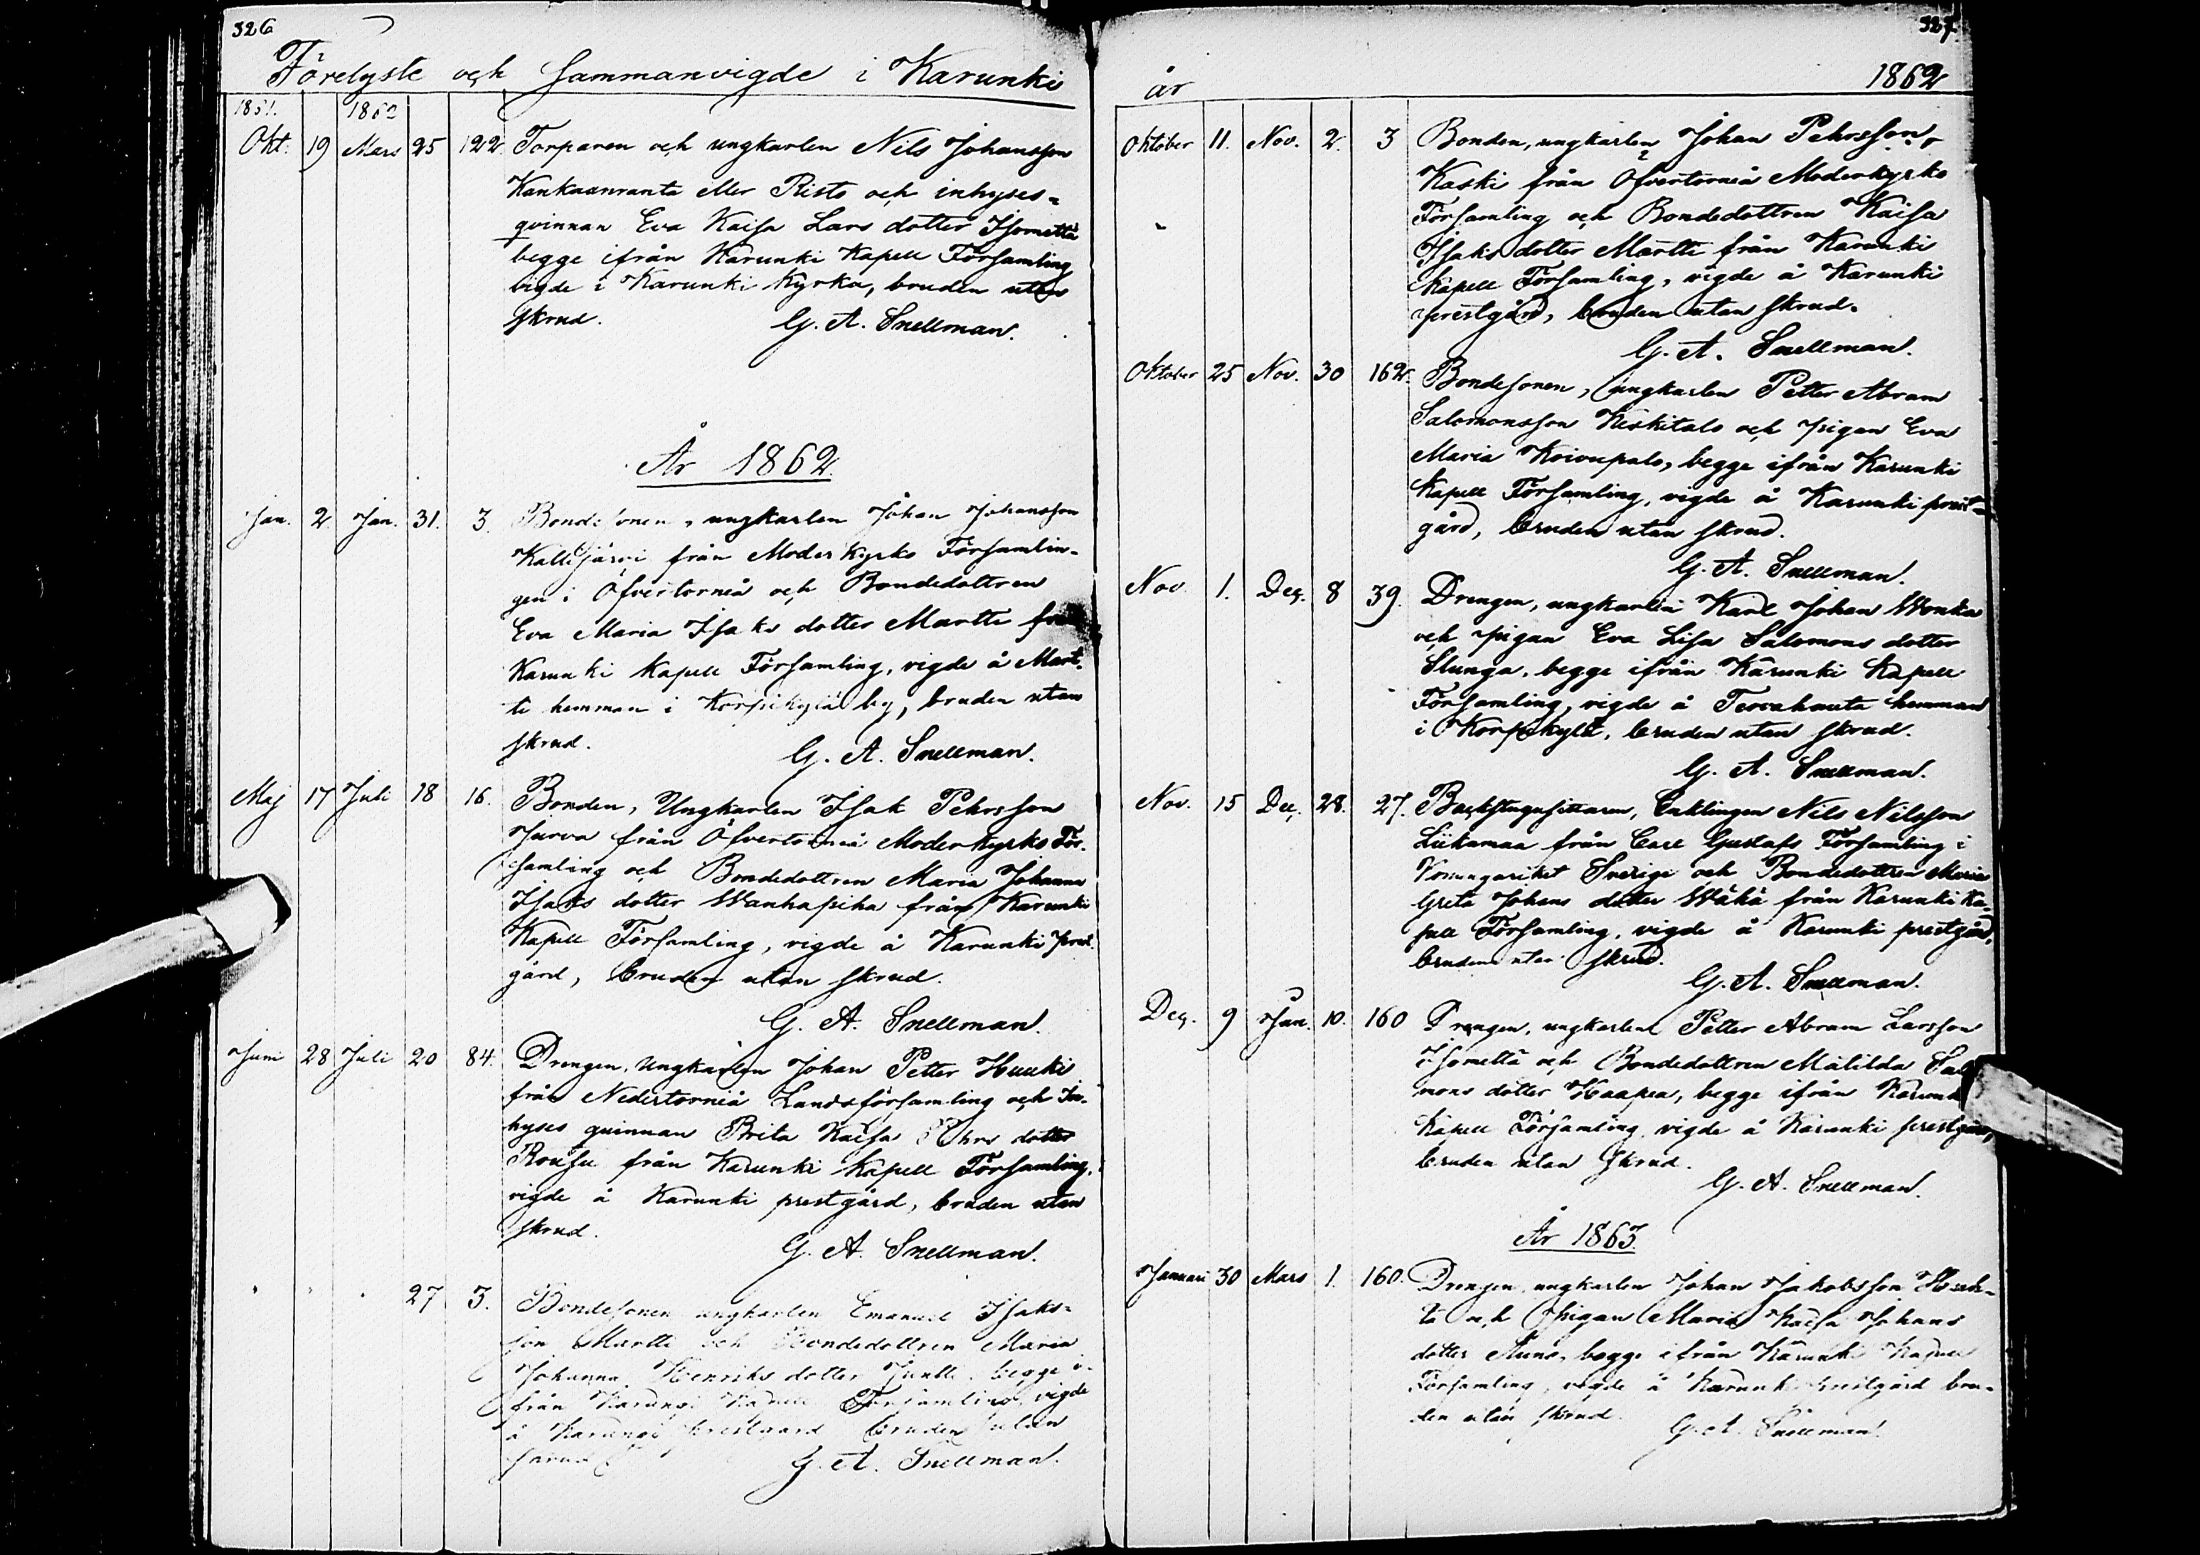 326
Förelyste och sammanvigde i Karunki
1851. 1852
Okt. 19 Mars 25 122. Torparen och ungkarlen Nils Johansson
Kankaanranta eller Risto och inhyses-
qvinnan Eva Kaisa Lars dotter Isometsä
begge ifrån Karunki Kapell Församling
vigde i Karunki Kyrka, bruden utan
skrud. G. A. Snellman.
År 1862.
Jan. 2 Jan. 31. 3. Bondesonen, ungkarlen Johan Johansson
Kallijärvi från Moderkyrko Församlin-
gen i Öfvertorneå och Bondedottren
Eva Maria Isaks dotter Martti från
Karunki Kapell Församling, vigde å Mart-
ti hemman i Korpikylä by, bruden utan
skrud. G. A. Snellman.
Maj 17 Juli 18 16. Bonden, Ungkarlen Isak Pehrsson
Jurva från Öfvertorneå Moderkyrko För-
samling och Bondedottren Maria Johanna
Isaks dotter Wanhapiha från Karunki
Kapell Församling, vigde å Karunki prest-
gård, bruden utan skrud.
G. A. Snellman.
Juni 28 Juli 20 84. Drengen, Ungkarlen Johan Petter Huuki
från Nedertorneå Landsförsamling och In-
hyses qvinnan Brita Kaisa Pehrs dotter
Rousu från Karunki Kapell Församling,
vigde å Karunki prestgård, bruden utan
skrud.
G. A. Snellman.
27 3. Bondesonen ungkarlen Emanuel Isaks-
son Martti och Bondedottren Maria
Johanna Henriks dotter Juntti, begge i-
från Karungi Kapell Församling, vigde
å Karungi prestgård bruden utan
skrud G. A. Snellman.
327.
år 1862
Oktober 11. Nov. 2. 3 Bonden, ungkarlen Johan Pehrsson
Kaski från Öfvertorneå Moderkyrko
Församling och Bondedottren Kaisa
Isaks dotter Martti från Karunki
Kapell Församling, vigde å Karunki
prestgård, bruden utan skrud.
G. A. Snellman.
Oktober 25 Nov. 30 162. Bondesonen, ungkarlen Petter Abram
Salomonsson Keskitalo och pigan Eva
Maria Koivupalo, begge ifrån Karunki
Kapell Församling, vigde å Karunki prest-
gård, bruden utan skrud.
G. A. Snellman.
Nov. 1. Dec. 8 39. Drengen, ungkarlen Karl Johan Wonka
och pigan Eva Lisa Salomons dotter
Slunga, begge ifrån Karunki Kapell
Församling, vigde å Tervahauta hemman
i Korpikylä, bruden utan skrud.
G. A. Snellman.
Nov. 15 Dec. 28. 27. Backstugusittaren, Enklingen Nils Nilsson
Liikamaa från Carl Gustafs Församling i
Konungariket Sverige och Bondedottren Maria
Greta Johans dotter Wähä från Karunki Ka-
pell Församling, vigde å Karunki prestgård,
bruden utan skrud.
G. A. Snellman.
Dec. 9 Jan. 10. 160 Drengen, ungkarlen Petter Abram Larsson
Isometsä och Bondedottren Matilda Salo-
mons dotter Haapea, begge ifrån Karunki
Kapell Församling vigde å Karunki prestgård,
bruden utan skrud.
G. A. Snellman.
År 1863.
Januari 30 Mars 1. 160. Drengen, ungkarlen Johan Jakobsson Huh-
ta och Pigan Maria Kaisa Johans
dotter Auno, begge ifrån Karunki Kapell
Församling, vigde å Karunki prestgård bru-
den utan skrud.
G. A. Snellman.